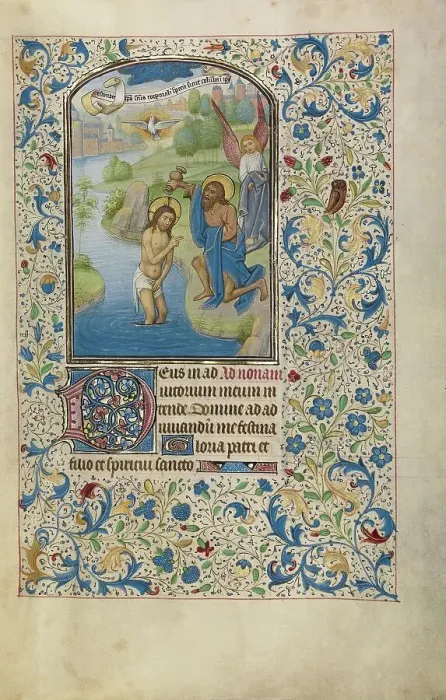 corporali specie
Deus in ad Ad nonam
iutorium meum in
tende. Domine ad ad
iuuandū me festina
Gloria patri et
filio et spiritui sancto